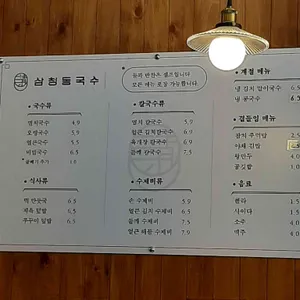 삼청동국수
물과 반찬은 셀프입니다
모든 메뉴 포장 가능합니다
국수류
멸치국수 4.9
오뎅국수 5.9
얼큰국수 5.5
비빔국수 6.5
식사류
떡 만둣국 6.5
제육 덮밥 6.5
쭈꾸미 덮밥 6.5
칼국수류
멸치 칼국수 5.9
얼큰 김치칼국수 6.5
육개장 칼국수 6.9
들깨 칼국수 7.5
수제비류
손 수제비 5.9
얼큰 김치 수제비 6.5
들깨 수제비 7.5
얼큰 해물 수제비 7.9
계절 메뉴
냉 김치말이국수
냉 콩국수
곁들임 메뉴
참치 주먹밥
야채 김밥
왕만두 4.0
공깃밥
음료
콜라
사이다
소주 4.0
맥주 4.0